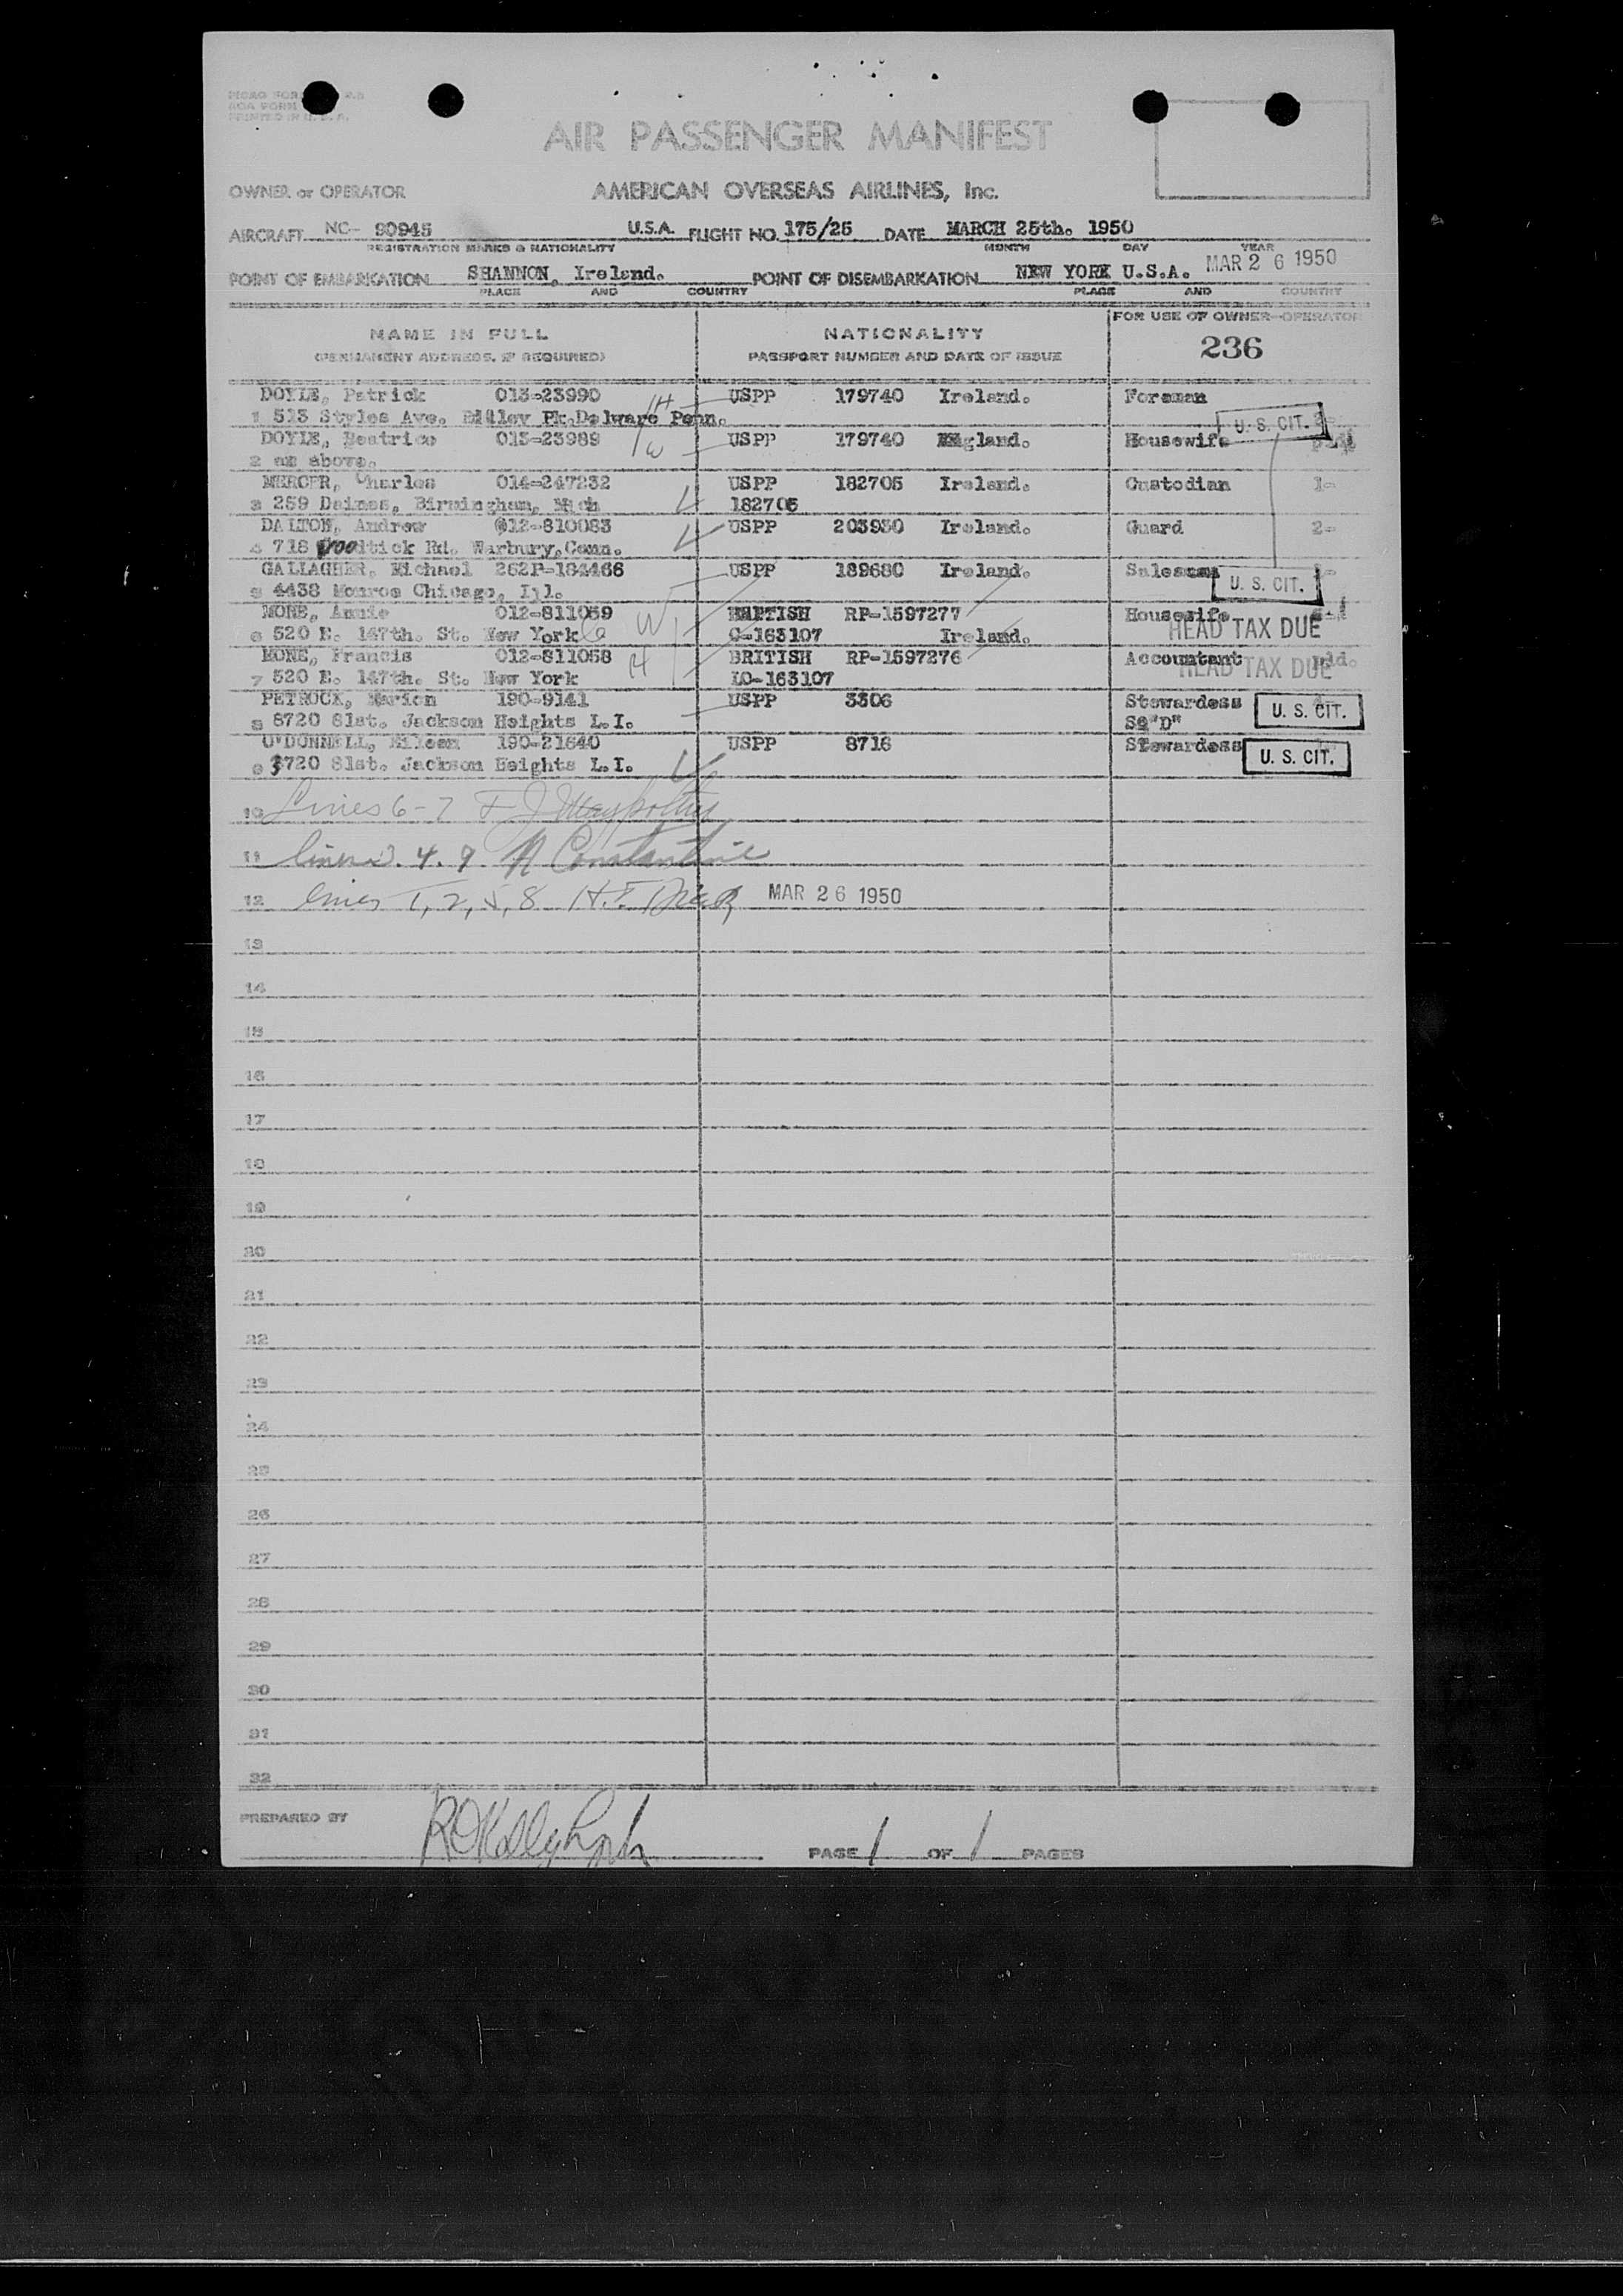 AIR PASSENGER MANIFEST
OWNER or OPERATOR AMERICAN OVERSEAS AIRLINES, Inc.
AIRCRAFT NC- 90945 U.S.A. FLIGHT NO. 175/25 DATE MARCH 25th. 1950
REGISTRATION MARKS & NATIONALITY MONTH DAY YEAR
POINT OF EMBARKATION SHANNON, Ireland. POINT OF DISEMBARKATION NEW YORK U.S.A. MAR 26 1950
PLACE AND COUNTRY PLACE AND COUNTRY
NAME IN FULL NATIONALITY FOR USE OF OWNER-OPERATOR
(PERMANENT ADDRESS, IF REQUIRED) PASSPORT NUMBER AND DATE OF ISSUE 236
DOYLE, Patrick 013-23990 USPP 179740 Ireland. Foreman
1 513 Styles Ave. Ridley Pk. Delware Penn. H U. S. CIT.
DOYLE, Beatrice 013-23989 W USPP 179740 England. Housewife
2 as above.
MERCER, Charles 014-247232 USPP 182705 Ireland. Custodian 1-
3 259 Daines, Birmingham, Mich 182705
DALTON, Andrew 012-810083 USPP 203930 Ireland. Guard 2-
4 718 Rd. Warbury, Conn.
GALLAGHER, Michael 262P-184466 USPP 189680 Ireland. Salesman
5 4438 Monroe Chicago, Ill. U. S. CIT.
MONE, Annie 012-811059 W BRITISH RP-1597277 Housewife
6 520 E. 147th. St. New York C-163107 Ireland. HEAD TAX DUE
MONE, Francis 012-811058 H BRITISH RP-1597276 Accountant pld.
7 520 E. 147th. St. New York LO-163107 HEAD TAX DUE
PETROCK, Marion 190-9141 USPP 3306 Stewardess
8 8720 81st. Jackson Heights L.I. "D" U. S. CIT.
O'DONNELL, Eileen 190-21640 USPP 8716 Stewardess
9 8720 81st. Jackson Heights L.I. U. S. CIT.
10 Lines 6-7
11 lines 3. 4. 9 N Constantine
12 lines 1, 2, 5, 8 MAR 26 1950
13
14
15
16
17
18
19
20
21
22
23
24
25
26
27
28
29
30
31
32
PREPARED BY
PAGE 1 OF 1 PAGES